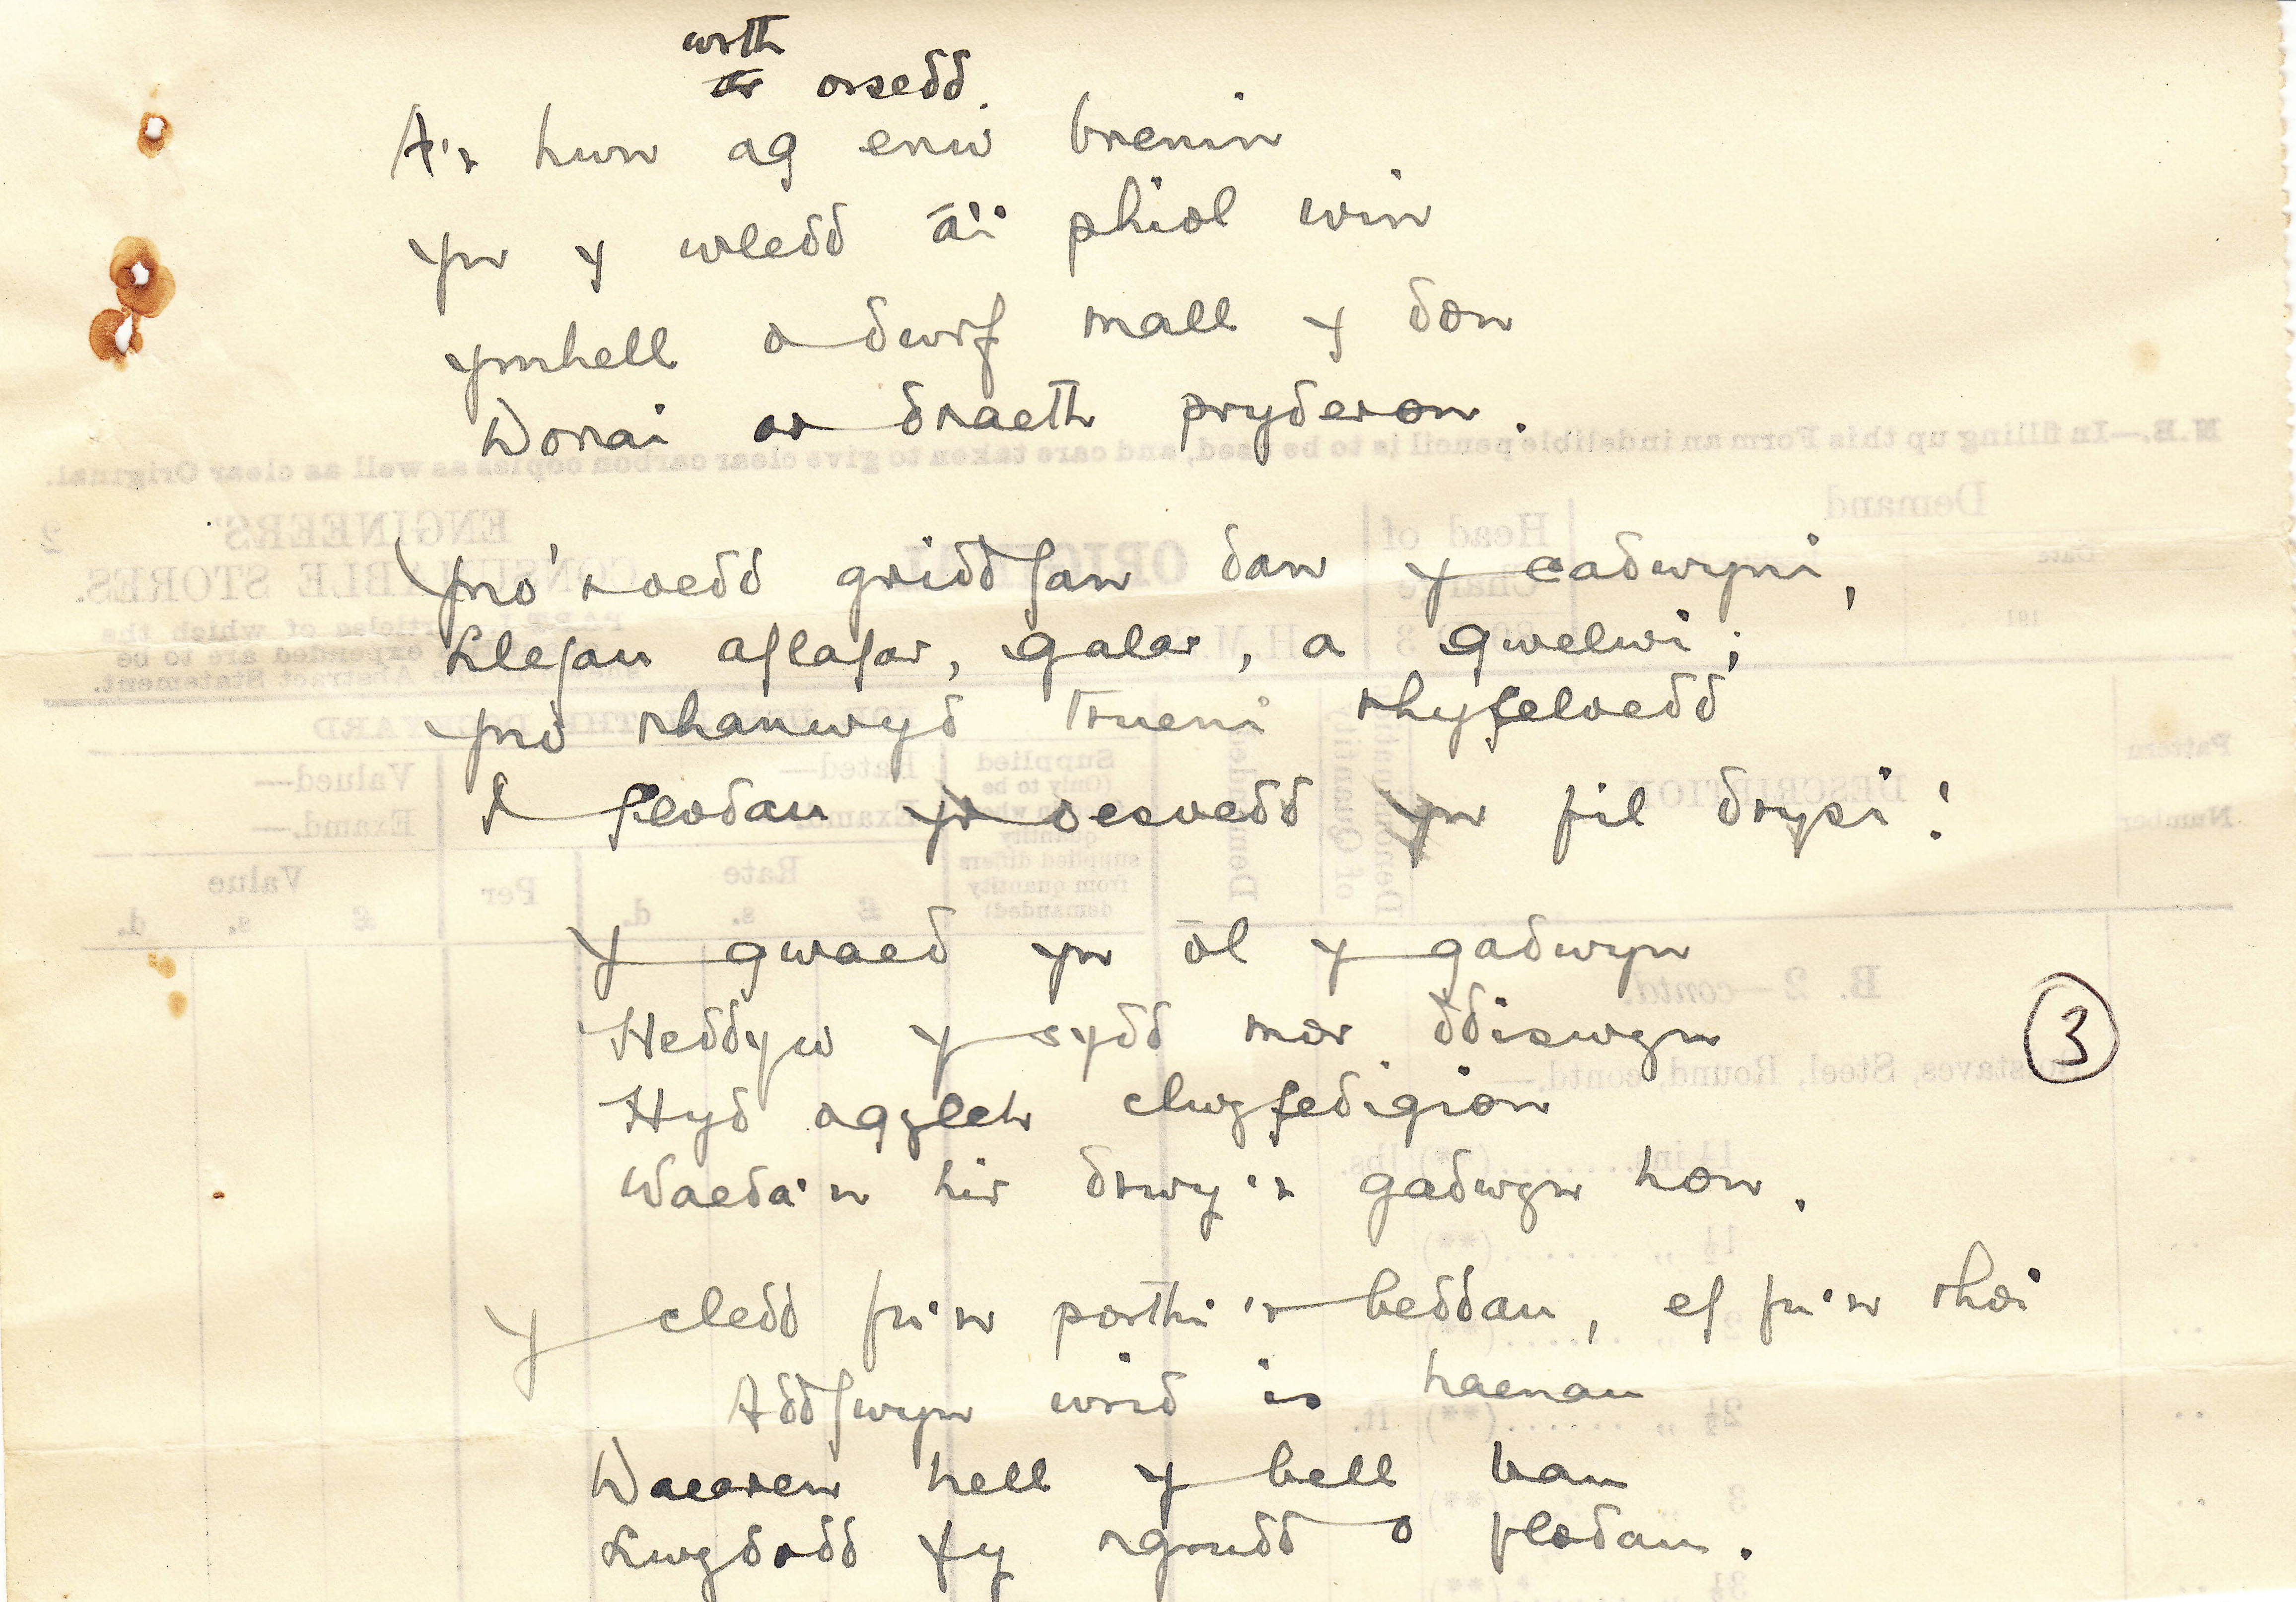 wrth
ar orsedd.
A'r hwn ag enw brenin
Yn y wledd â'i phiol win
Ymhell o dwrf mall y don
Dorrai ar draeth pryderon.
Yno 'roedd griddfan dan y cadwyni,
Llefau aflafar, galar, a gwelwi;
Yno rhanwyd trueni rhyfeloedd
A flodau yr oesoedd yn fil drysi!
Y gwaed yn ôl y gadwyn
Heddyw y sydd mor ddiswyn
Hyd ogylch clwyfedigion
Waeda'n hir drwy'r gadwyn hon.
3
Y cledd fu'n porthi'r beddau, ef fu'n rhoi
Addfwyn wrid is haenau
Daearen hell y bell bau
Lwydodd fy ngrudd o flodau.
N.B.—In filling up this Form an indelible pencil is to be used, and care taken to give clear carbon copies as well as clear Original.
Demand
Date
191
Head of
Charge
ORIGINAL
H.M.
ENGINEERS'
CONSUMABLE STORES.
2
articles of which the
expended are to be
shown in the Abstract Statement.
Pattern
Number
DESCRIPTION
Denomination
of Quantity
Demanded
Supplied
(Only to be
quantity
supplied differs
from quantity
demanded)
Rated—
Examd.
Valued—
Examd.—
Rate
Per
Value
£ s. d.
£ s. d.
B. 2—contd.
staves, Steel, Round, contd.—